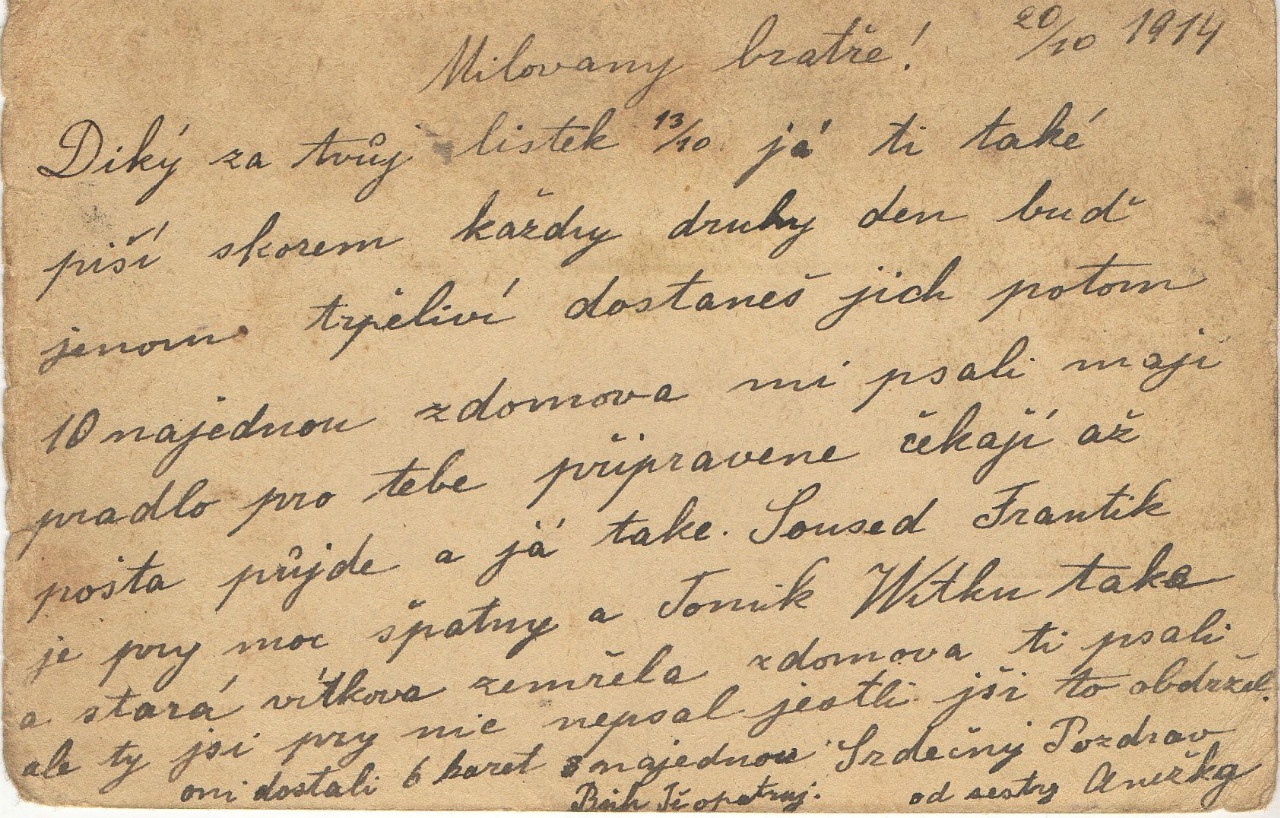 20/10 1914
Milovany bratře!
Diký za tvůj listek 13/10 já ti také
piší skorem každy druhy den buď
jenom trpěliví dostaneš jich potom
10 najednou zdomova mi psali maji
pradlo pro tebe připravene čekají až
pošta půjde a já take. Soused Frantik
je pry moc špatny a Tonik Witku take
a stará vítkova zemřela zdomova ti psali
ale ty jsi pry nic nepsal jestli jši to obdržel.
oni dostali 6 karet najednou Srdečny Pozdrav
Bůh Tě opatruj. od sestry Anežky